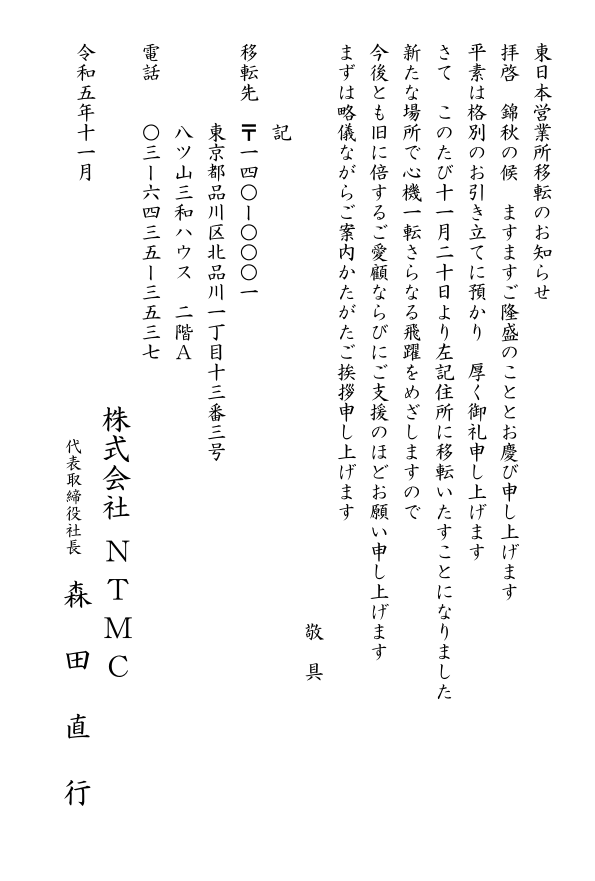 東日本営業所移転のお知らせ
拝啓　錦秋の候　ますますご隆盛のこととお慶び申し上げます
平素は格別のお引き立てに預かり　厚く御礼申し上げます
さて　このたび十一月二十日より左記住所に移転いたすことになりました
新たな場所で心機一転さらなる飛躍をめざしますので
今後とも旧に倍するご愛顧ならびにご支援のほどお願い申し上げます
まずは略儀ながらご案内かたがたご挨拶申し上げます
敬　具
記
移転先　〒一四〇ー〇〇〇一
東京都品川区北品川一丁目十三番三号
八ツ山三和ハウス　二階A
電話　〇三ー六四三五ー三五三七
株式会社 NTMC
令和五年十一月
代表取締役社長　森　田　直　行